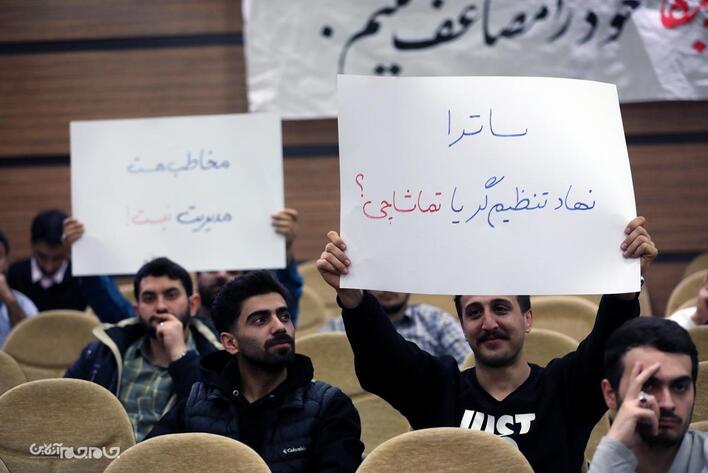 خود را مضاعف کنیم.
ساترا
نهاد تنظیم‌گر یا تماشاچی؟
مخاطب هست
مدیریت نیست!
JUST
Columbia
جام‌جم آنلاین